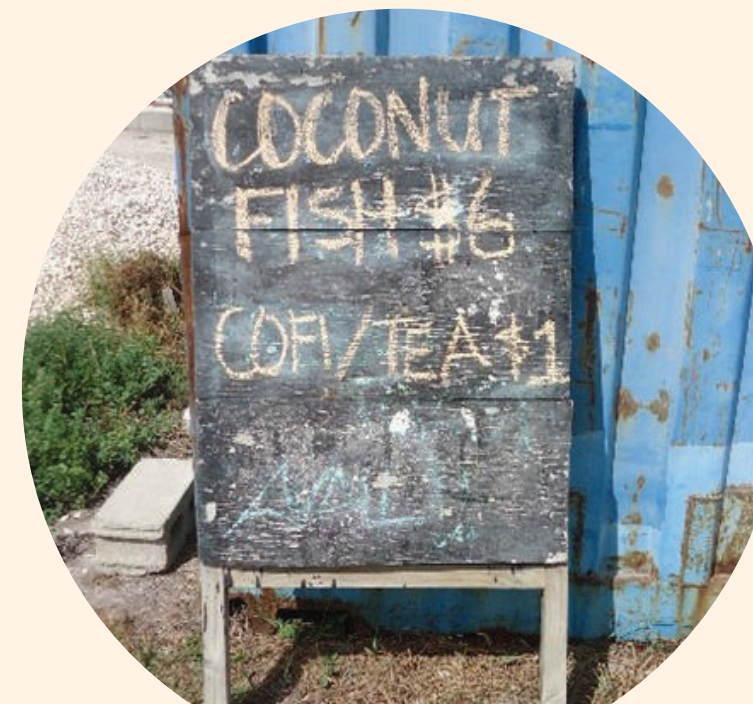 COCONUT
FISH $6
COFI/TEA $1